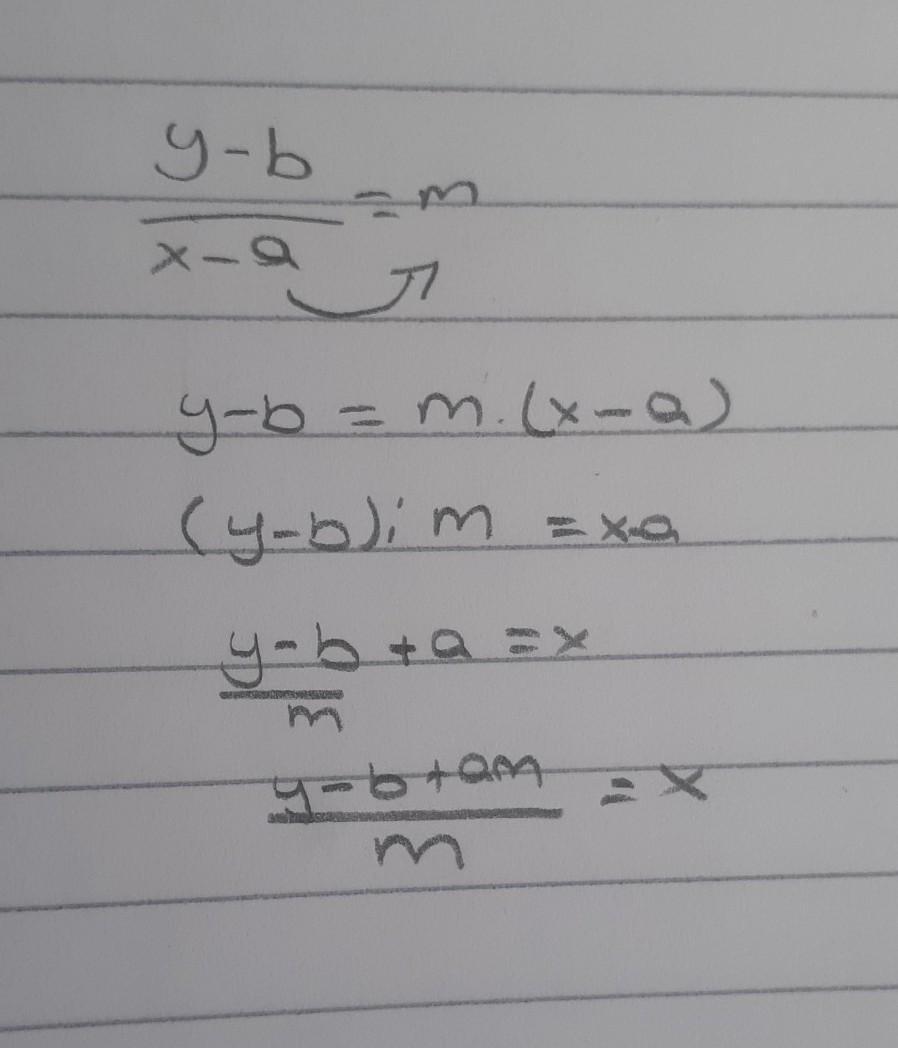 y-b/x-a = m
y-b = m.(x-a)
(y-b): m = x-a
y-b/m + a = x
y-b+am/m = x